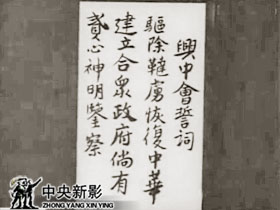 興中會誓詞
驅除韃虜恢復中華
建立合衆政府倘有
貳心神明鑒察
中央新影
ZHONG YANG XIN YING